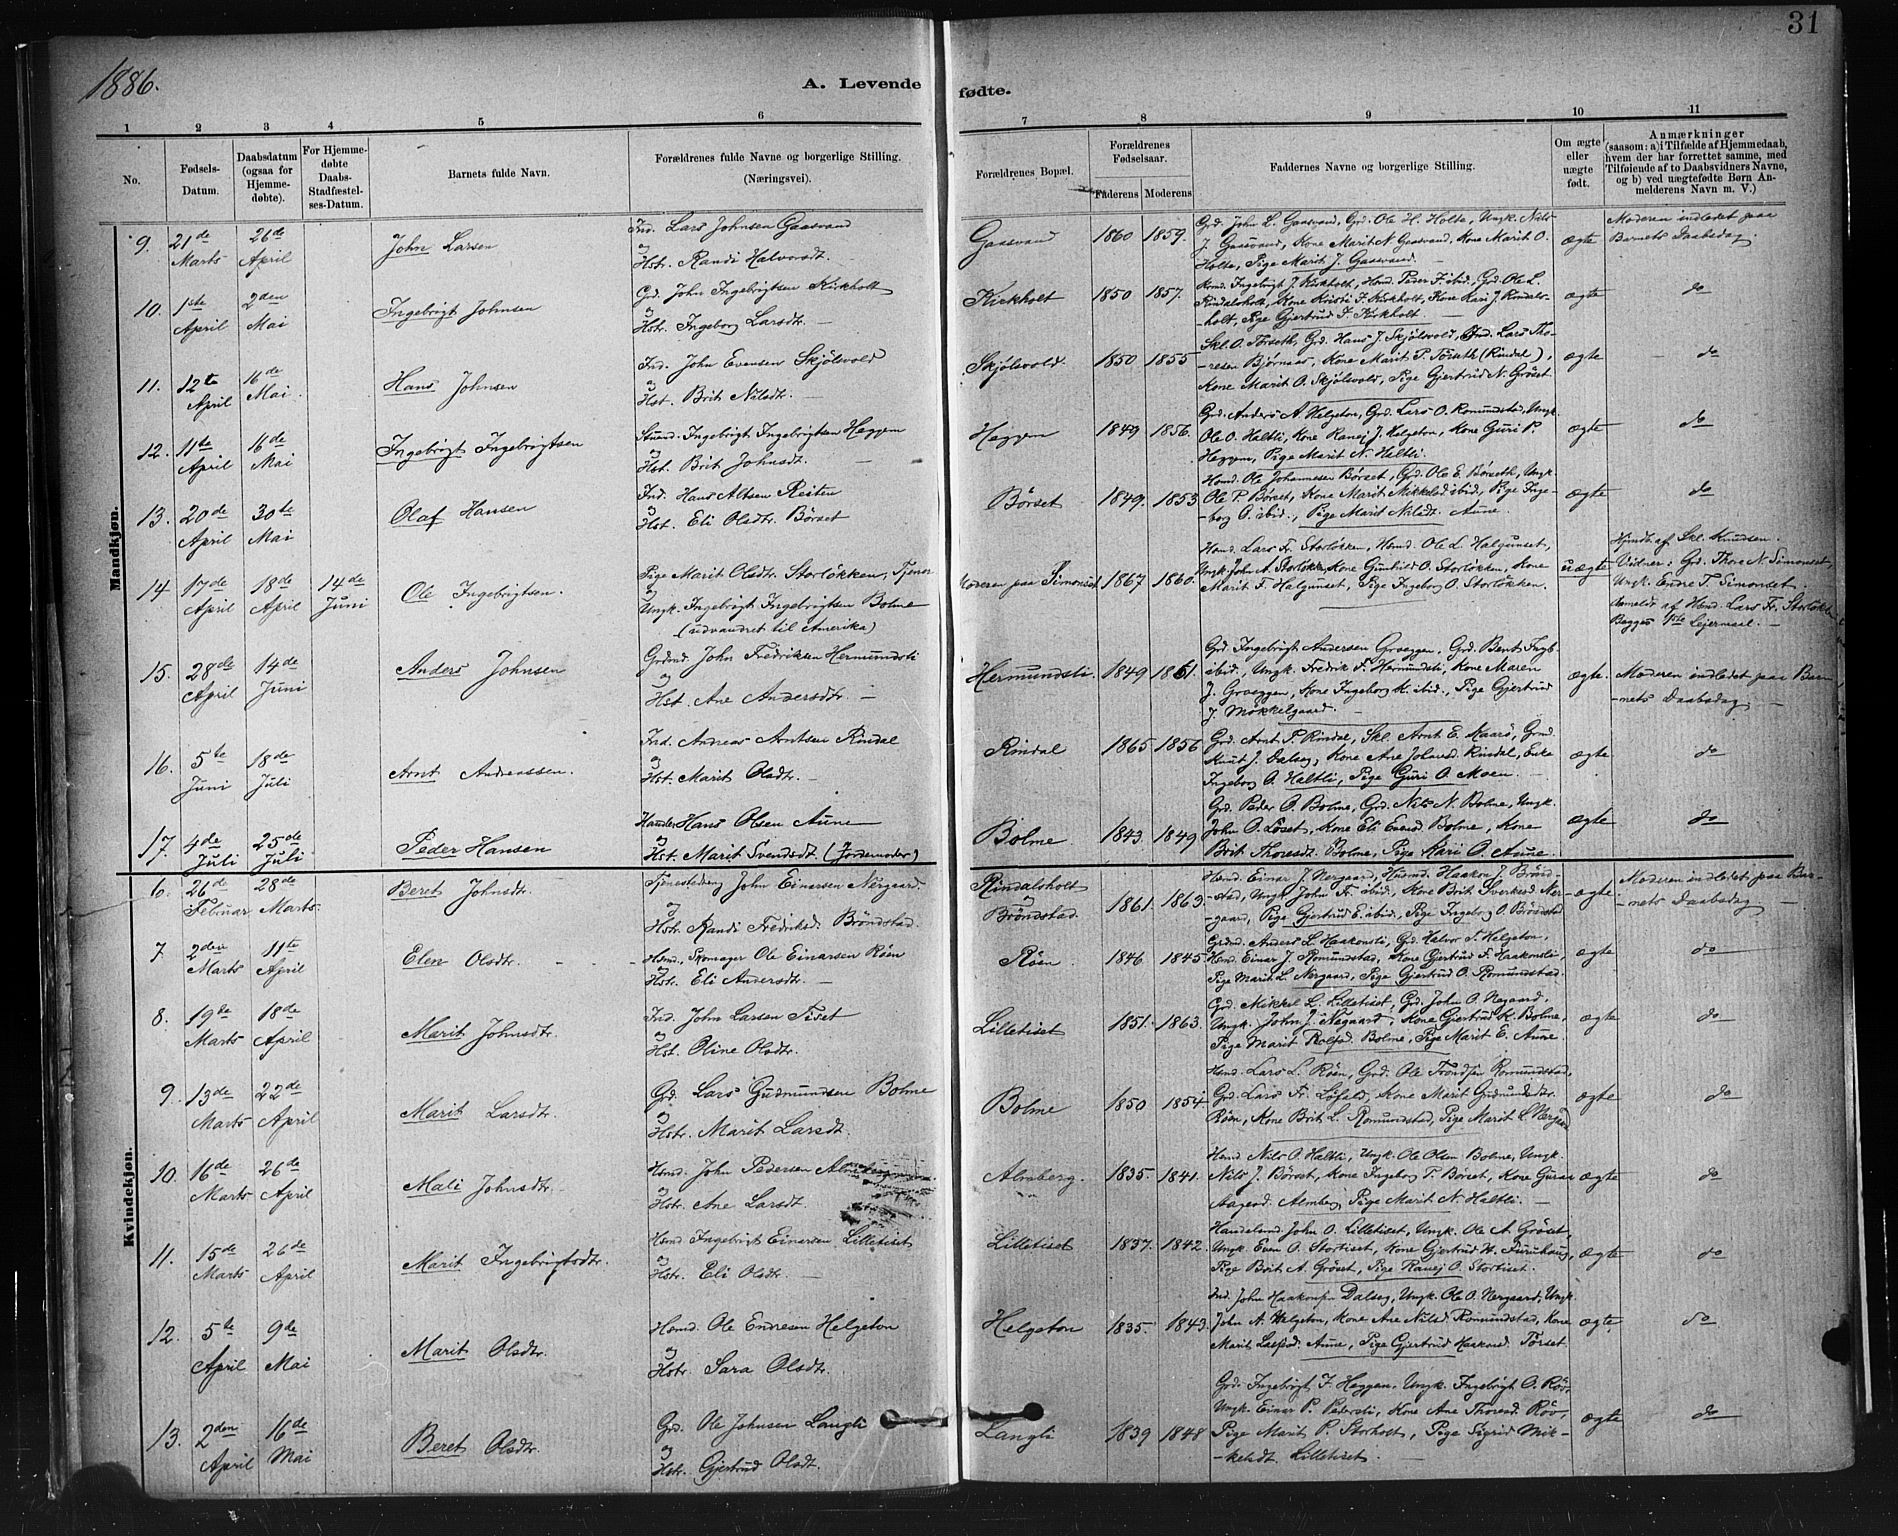 31
1886.
A. Levende fødte.
1 2 3 4 5 6 7 8 9 10 11
No.
Fødsels-Datum.
Daabsdatum (ogsaa for Hjemme-døbte).
For Hjemme-døbte Daabs-Stadfæstel-ses-Datum.
Barnets fulde Navn.
Forældrenes fulde Navne og borgerlige Stilling. (Næringsvei).
Forældrenes Bopæl.
Forældrenes Fødselsaar.
Faderens Moderens
Faddernes Navne og borgerlige Stilling.
Om ægte eller uægte født.
Anmærkninger (saasom: a) i Tilfælde af Hjemmedaab, hvem der har forrettet samme, med Tilføiende af to Daabsvidners Navne, og b) ved uægtefødte Børn An-melderens Navn m. V.)
Mandkjøn.
9. 21de Marts 26de April John Larsen
Ind. Lars Johnsen Gaasvand
og
Hstr. Randi Halvorsdt.
Gaasvand 1860 1859.
Grd. John L. Gaasvand, Grd. Ole H. Holte, Ungk. Nils
J. Gaasvand, Kone Marit N. Gaasvand, Kone Marit O.
Holte, Pige Marit J. Gaasvand.
ægte
Moderen indledet paa
Barnets Daabsdag.
10. 1ste April 2den Mai Ingebrigt Johnsen
Grd. John Ingebrigtsen Kirkholt
og
Hstr. Ingeborg Larsdtr. —
Kirkholt 1850 1857.
Ingebrigt J. Kirkholt, Hsmd. Peder F. ibid. Grd. Ole L.
Rindalsholt, Kone Kristi F. Kirkholt, Kone Kari J. Rindals-
holt, Pige Gjertrud F. Kirkholt —
ægte do
11. 12te April 16de Mai Hans Johnsen
Ind. John Evensen Skjølsvold
og
Hst. Brit Nilsdt. —
Skjølsvold. 1850 1855
Skl. O. Torseth, Grd. Hans J. Skjølsvold, Lars Tho-
resen Bjørnaas, Kone Marit P. Torseth (Rindal),
Kone Marit O. Skjølsvold, Pige Gjertrud N. Grøset
ægte — do
12. 11te April 16de Mai Ingebrigt Ingebrigtsen
Ingebrigt Ingebrigtsen Heggem
og
Hst. Brit Johnsdt. —
Heggem 1849 1856.
Grd. Anders A. Helgeton, Grd. Lars O. Romundstad, Ungk.
Ole O. Haltli, Kone Ranei J. Helgeton, Kone Guri P.
Heggem, Pige Marit N. Haltli.
ægte do
13. 20de April 30te Mai Olaf Hansen
Ind. Hans Altsen Reiten
og
Hst. Eli Olsdtr. Børset
Børset 1849. 1853
Hsmd. Ole Johannesen Børset, Grd. Ole E. Børseth, Ungk.
Ole P. Børset, Kone Marit Mikkelsd. ibid, Pige Inge-
borg O. ibid., Pige Marit Nilsdt. Aune.
ægte do
14 17de April 18de April 14de Juni Ole Ingebrigtsen.
Pige Marit Olsdtr. Storløkken, Tjener
og
Ungk. Ingebrigt Ingebrigtsen Bolme
(udvandret til Amerika)
Moderen paa Simonset 1867 1860.
Hsmd. Lars Fr. Storløkken, Hsmd. Ole L. Halgunset,
Ungk. John A. Storløkk, Kone Gunhild O. Storløkken, Kone
Marit F. Halgunset, Pige Ingeborg O. Storløkken.
uægte
Hjmdt. af Skl. Knudsen.
Vidner: Grd. Thore N. Simonset,
Ungk. Endre T. Simonset.
Anmeldt af Hsmd. Lars Fr. Storløkk
Begges 1ste Leiermaal. —
15. 28de April 14de Juni Anders Johnsen
John Fredriksen Hermundsli
og
Hst. Ane Andersdtr. —
Hermundsli 1849 1861.
Grd. Ingebrigt Andersen Groeggen, Grd. Bent Ingb.
ibid., Ungk. Fredrik F. Hermundsli, Kone Maren
J. Groeggen, Kone Ingeborg K. ibid., Pige Gjertrud
J. Møkkelgaard. —
ægte.
Moderen indledet paa Bar-
nets Daabsdag —
16. 5te Juni 18de Juli Arnt Andreassen.
Ind. Andreas Arntsen Rindal
og
Hst. Marit Olsdtr. —
Rindal 1865 1856
Grd. Arnt P. Rindal, Skl. Arnt E. Kaarø,
Knut J. Dalseg, Kone Ane Johansd. Rindal, Enke
Ingeborg O. Haltli, Pige Guri O. Moen.
ægte do
17. 4de Juli 25de Juli Peder Hansen
Handler Hans Olsen Aune
og
Hst. Marit Svendsdt (Jordemoder)
Bolme 1843 1849
Grd. Peder O. Bolme, Grd. Nils N. Bolme, Ungk.
John O. Løset, Kone Eli Evensd. Bolme, Kone
Brit Thoresdt. Bolme, Pige Kari O. Aune.
ægte do
Kvindekjøn.
6. 26de Februar 28de Marts. Beret Johnsdtr.
Tjenestedreng John Einarsen Nergaard.
og
Hstr. Randi Fredriksd. Brøndstad.
Rindalsholt
og
Brøndstad. 1861. 1863.
Hsmd. Einar J. Nergaard, Husmd. Haakon J. Brønd-
stad, Ungk. John Fr. ibid., Kone Brit Sverkesd. Ner-
gaard, Pige Gjertrud E. ibid., Pige Ingeborg O. Brøndstad
ægte
Moderen indledet paa Bar-
nets Daabsdag —
7. 2den Marts 11te April Elen Olsdtr. - - -
Hsmd., Skomager Ole Einarsen Røen
og
Hst. Eli Andersdtr. —
Røen 1846. 1845
Anders L. Haakonsli, Grd. Halvor T. Helgeton,
Hsmd. Einar J. Romundstad, Kone Gjertrud F. Haakonsli,
Pige Marit L. Nergaard, Pige Gjertrud O. Romundstad.
ægte do
8. 19de Marts 18de April Marit Johnsdtr.
Ind. John Larsen Tiset
og
Hst. Oline Olsdtr.
Lilletiset 1851. 1863.
Grd. Mikkel L. Lilletiset, Grd. John O. Negaard,
Ungk. John J. Negaard, Kone Gjertrud K. Bolme,
Pige Marit Rolfsd. Bolme, Pige Marit E. Aune.
ægte do
9. 13de Marts 22de April Marit Larsdtr.
Grd. Lars Gudmundsen Bolme
og
Hstr. Marit Larsdt.
Bolme 1850 1854.
Hsmd. Lars L. Røen, Grd. Ole Trondsen Romundstad,
Grd. Lars Fr. Løfald, Kone Marit Gudmundsdtr.
Røen, Kone Brit L. Romundstad, Pige Marit L. Nergaard
ægte do
10. 16de Marts 26de April Mali Johnsdtr.
Hsmd. John Pedersen Almberg
og
Hstr. Ane Larsdt.
Almberg. 1835. 1841.
Hsmd Nils O. Haltli, Ungk. Ole Olsen Bolme, Ungk.
Nils J. Børset, Kone Ingeborg T. Børset, Kone Guru
Aagesd. Almberg, Pige Marit N. Haltli. —
ægte do
11. 15de Marts 26de April Marit Ingebrigtsdtr.
Hsmd Ingebrigt Einarsen Lilletiset
og
Hstr. Eli Olsdtr. —
Lilletiset 1837. 1842.
Handelsmd. John O. Lilletiset, Ungk. Ole A. Grøset,
Ungk. Even O. Stortiset, Kone Gjertrud H. Furuhaug,
Pige Brit A. Grøset, Pige Ranej O. Stortiset.
ægte do
12. 5te April 9de Mai Marit Olsdtr.
Hsmd. Ole Endresen Helgeton
og
Hstr. Sara Olsdtr.
Helgeton 1835. 1843.
Ind. John Haakonsen Dalseg, Ungk. Ole O. Nergaard, Ungk.
John A. Helgeton, Kone Ane Nilsd Romundstad, Kone
Marit Larsd. Aune, Pige Gjertrud Haakonsd. Torset.
ægte. do
13. 2den April 16de Mai Beret Olsdtr.
Grd. Ole Johnsen Langli
og
Hstr. Gjertrud Olsdt.
Langli 1839 1848
Grd. Ingebrigt F. Heggem, Ungk. Ingebrigt O. Röv,
Ungk. Einar P. Pedersli, Kone Ane Thoresd. Röv,
Pige Marit P. Storholt, Pige Sigrid Mik-
kelsdt. Lilletiset. —
ægte do